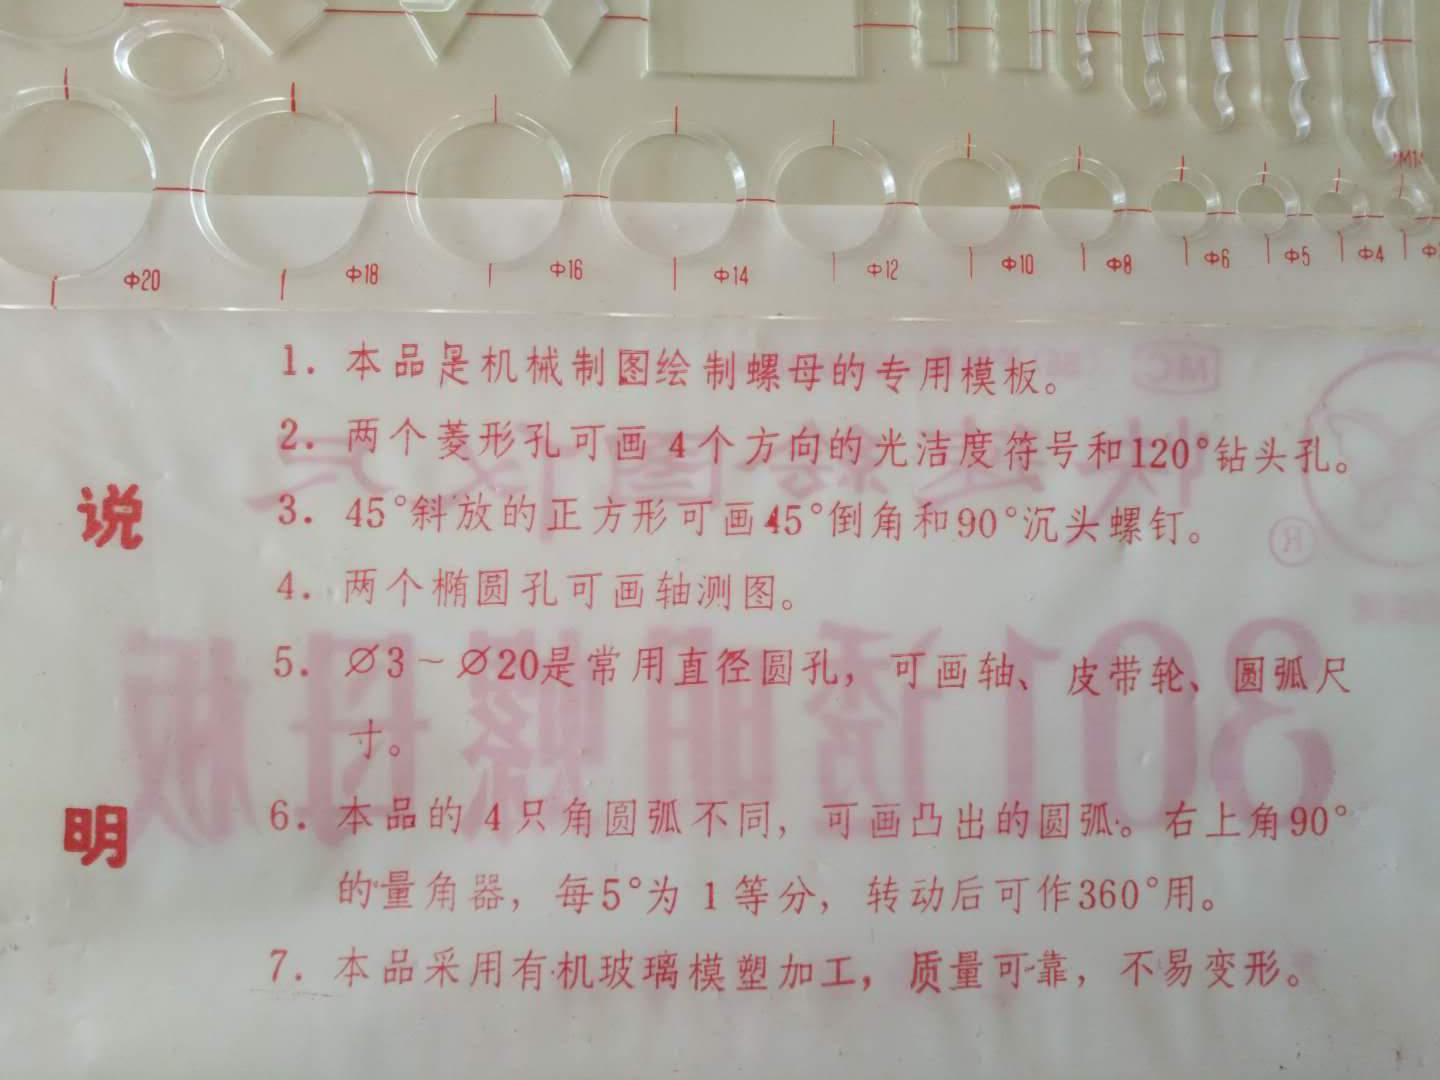 M1
Φ20 Φ18 Φ16 Φ14 Φ12 Φ10 Φ8 Φ6 Φ5 Φ4 Φ
说明
1. 本品是机械制图绘制螺母的专用模板。
2. 两个菱形孔可画 4个方向的光洁度符号和120°钻头孔。
3. 45°斜放的正方形可画45°倒角和90°沉头螺钉。
4. 两个椭圆孔可画轴测图。
5. ∅3～∅20是常用直径圆孔，可画轴、皮带轮、圆弧尺
寸。
6. 本品的 4 只角圆弧不同，可画凸出的圆弧。右上角90°
的量角器，每5°为 1 等分，转动后可作360°用。
7. 本品采用有机玻璃模塑加工，质量可靠，不易变形。
MC
快速绘图仪尺
®
3011透明螺母板